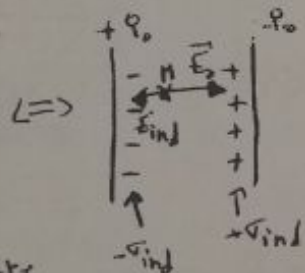 + q₀ - q₀
<=> - M E⃗₀ +
- E⃗ind +
- +
- +
-σind +σind